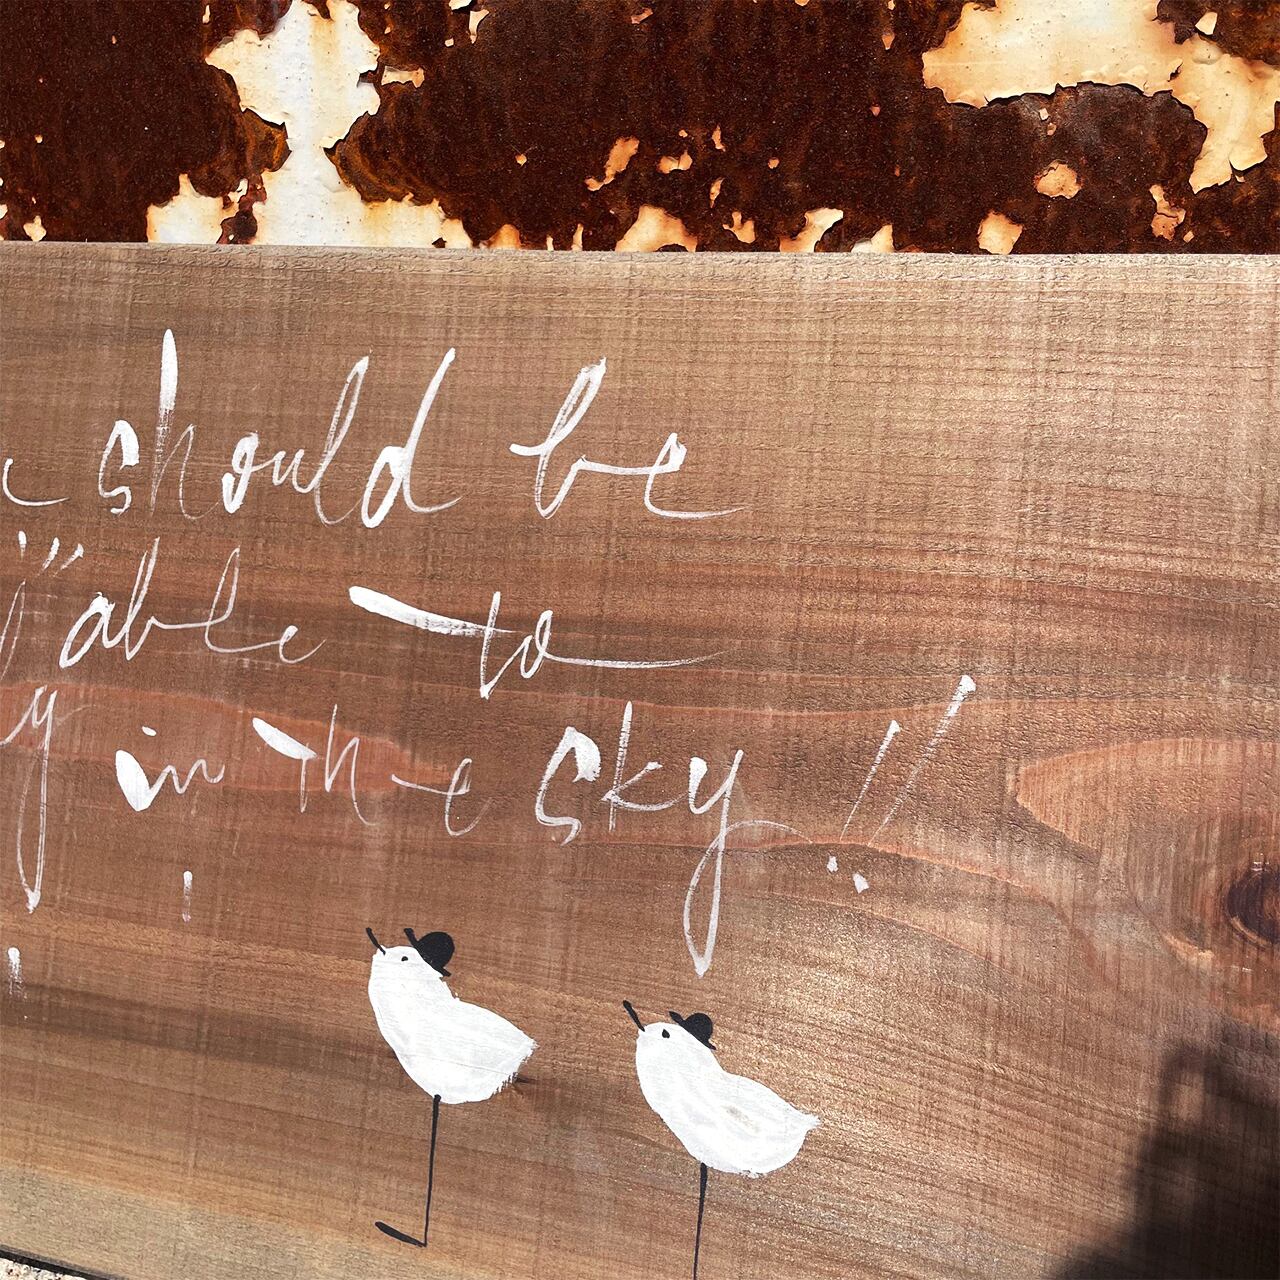 should be
able to
in the sky!!